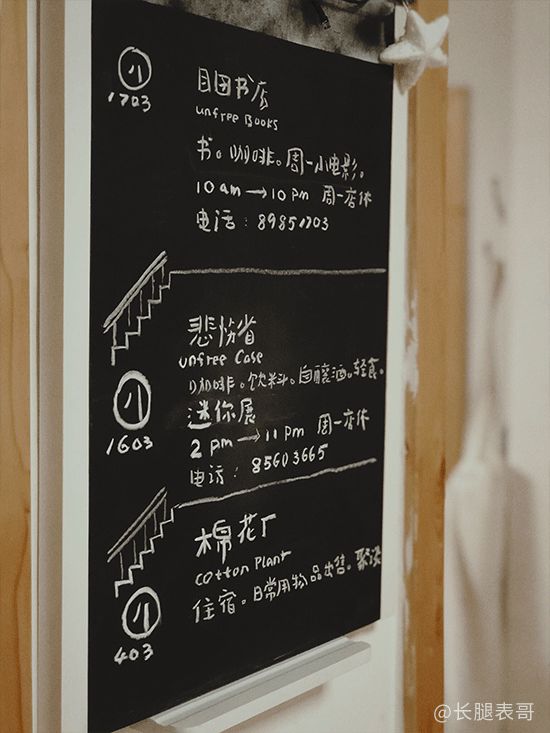 1703
目田书店
unfree Books
书。咖啡。周一小电影。
10 am → 10 pm 周一店休
电话：89851703
unfree Case
咖啡。饮料。自酿酒。轻食。
迷你展
2 pm → 11 pm 周一店休
1603
电话：85603665
棉花厂
cotton Plant
住宿。日常用物品出售。聚谈
403
@长腿表哥